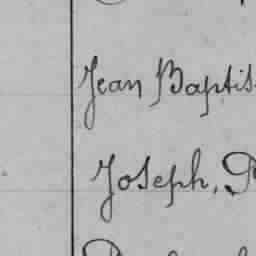 Jean Baptis
Joseph,